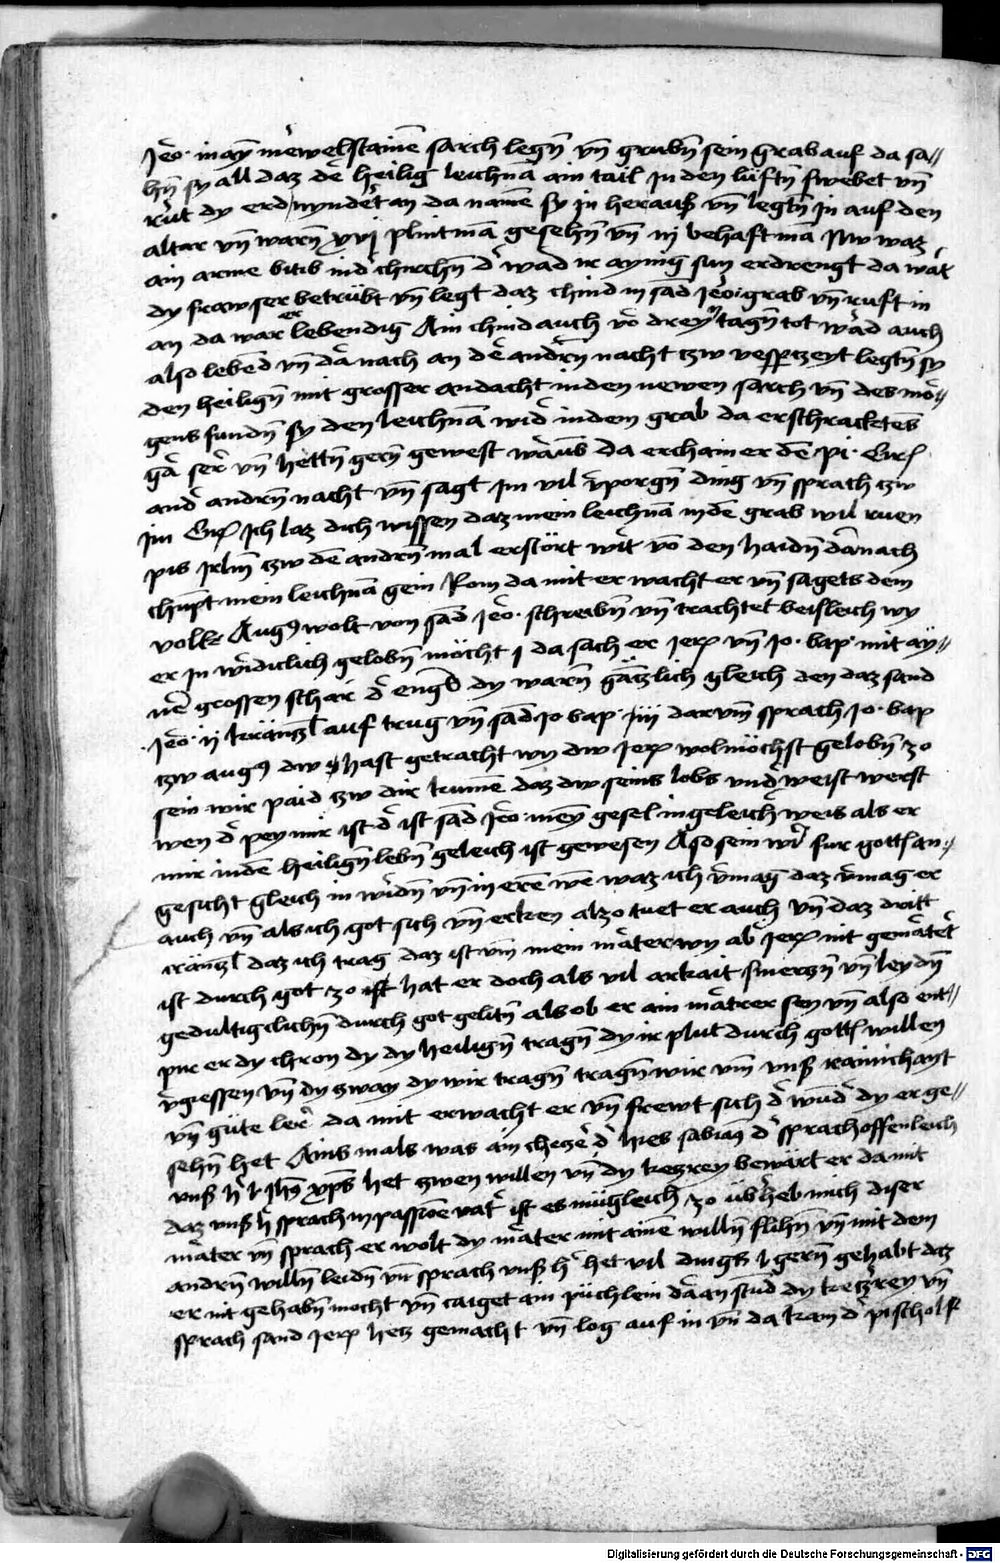 Jero. in ayn merwelstainē sarch legn̄ vn̄ grubn̄ sein grab auf da sa//
hn̄ sy all daz der heilig leichnā ain tail jn den lüftn̄ swebet vn̄
rüt dy erd nyndert an da namē sy jn heraus vn̄ legtn̄ jn auf den
altar vn̄ warn̄ xvj plintmā gesehn̄ vn̄ iij behaftmā Nw waz
ain arme bitib in der chirchn̄ der wad ir aynig sun erdrengt da wart
dy fraw ser betrübt vn̄ legt daz chind in sād Jero: grab vn̄ ruft in
an da war er lebendig Ain chind auch vō dreyn tagn̄ tot ward auch
also lebēd vn̄ darnach an der andern̄ nacht czw vesperczeyt legtn̄ sy
den heilign̄ mit grosser andacht in den newen sarch vn̄ des mor//
gens fundn̄ sy den leichnā wider in dem grab da erschracktens
gar ser vn̄ hettn̄ gern̄ gewest warūb da erchain er dē pi. Cirꝭ
and andern̄ nacht vn̄ sagt jm vil v̄porgn̄ ding vn̄ sprach czw
jm Cirꝭ Jch laz dich wissen daz mein leichnā in dē grab wil ruen
pis jrlm̄ czw dē andern̄ mal erstört wirt vō den haidn̄ darnach
chūpt mein leichnā gein Rom da mit er wacht er vn̄ sagets dem
volk Aug9 wolt von sād Jero. schreibn̄ vn̄ trachtet beisleich wy
er jn wirdiclich gelobn̄ möcht j da sach er jerꝭ vn̄ jo. bap. mit ay//
nē grossen schar der engel dy warn̄ gäczlich gleich den daz sand
Jero. ij kränczl auf trug vn̄ sād jo bap. iij darvm̄ sprach jo. bap
czw aug9 dw hast getracht wy dw jerꝭ wol möchst gelobn̄ zo
sein wir paid czw dir kumē daz dw seins lobs vnder weist werst
wen der pey mir ist der ist sād Jero: meyn gesel in geleicher weis als er
mir in dē heilign̄ lebn̄ geleich ist gewesen Also sein wir fur gottes an//
gesicht gleich in wirdn̄ vn̄ in erē wē waz ich v̄mag daz v̄mag er
auch vn̄ als ich got sich vn̄ erken alzo tuet er auch vn̄ daz dritt
kränczl daz ich trag daz ist vm̄ mein marter wy aber jerꝭ nit gemartert
ist durch got zo hat er doch als vil arbait smerczn̄ vn̄ leydn̄
gedultigclichn̄ durch got gelitn̄ als ob er ain martrer sey vn̄ also ent//
pir er dy chron dy dy heilign̄ tragn̄ dy ir plut durch gottes willen
v̄giessen vn̄ dy zway dy wir tragn̄ tragn̄ wir vm̄ vnser rainichayt
vn̄ güte ler da mit erwacht er vn̄ frewt sich der wūder dy er ge//
sehn̄ het Ains mals was ain checzer der hies sabian̄ der sprach offenleich
vnser her jhs xps het zwen willen vn̄ dy keczrey bewärt er damit
daz vnser her sprach in passione vater ist es mügleich zo überheb mich diser
marter vn̄ sprach er wolt dy marter mit ainē willn̄ flihn̄ vn̄ mit dem
andern̄ willn̄ leidn̄ vn̄ sprach vnser her het vil dings gern̄ gehabt daz
er nit gehabn̄ mocht vn̄ caiget ain püchlein daran stūd dy keczrey vn̄
sprach sand jerꝭ hetz gemacht vn̄ log auf in vn̄ da kam der pischolf
Digitalisierung gefördert durch die Deutsche Forschungsgemeinschaft - DFG